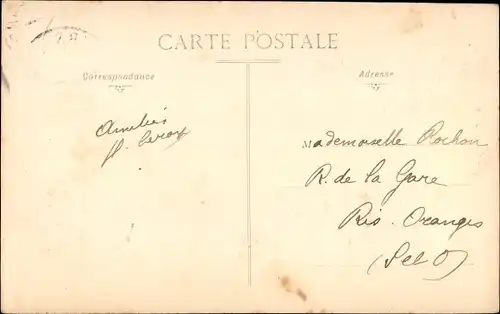 CARTE POSTALE
Correspondance
Adresse
Amitiés
Mademoiselle Rochon
R. de la Gare
Ris. Orangis
(S et O)